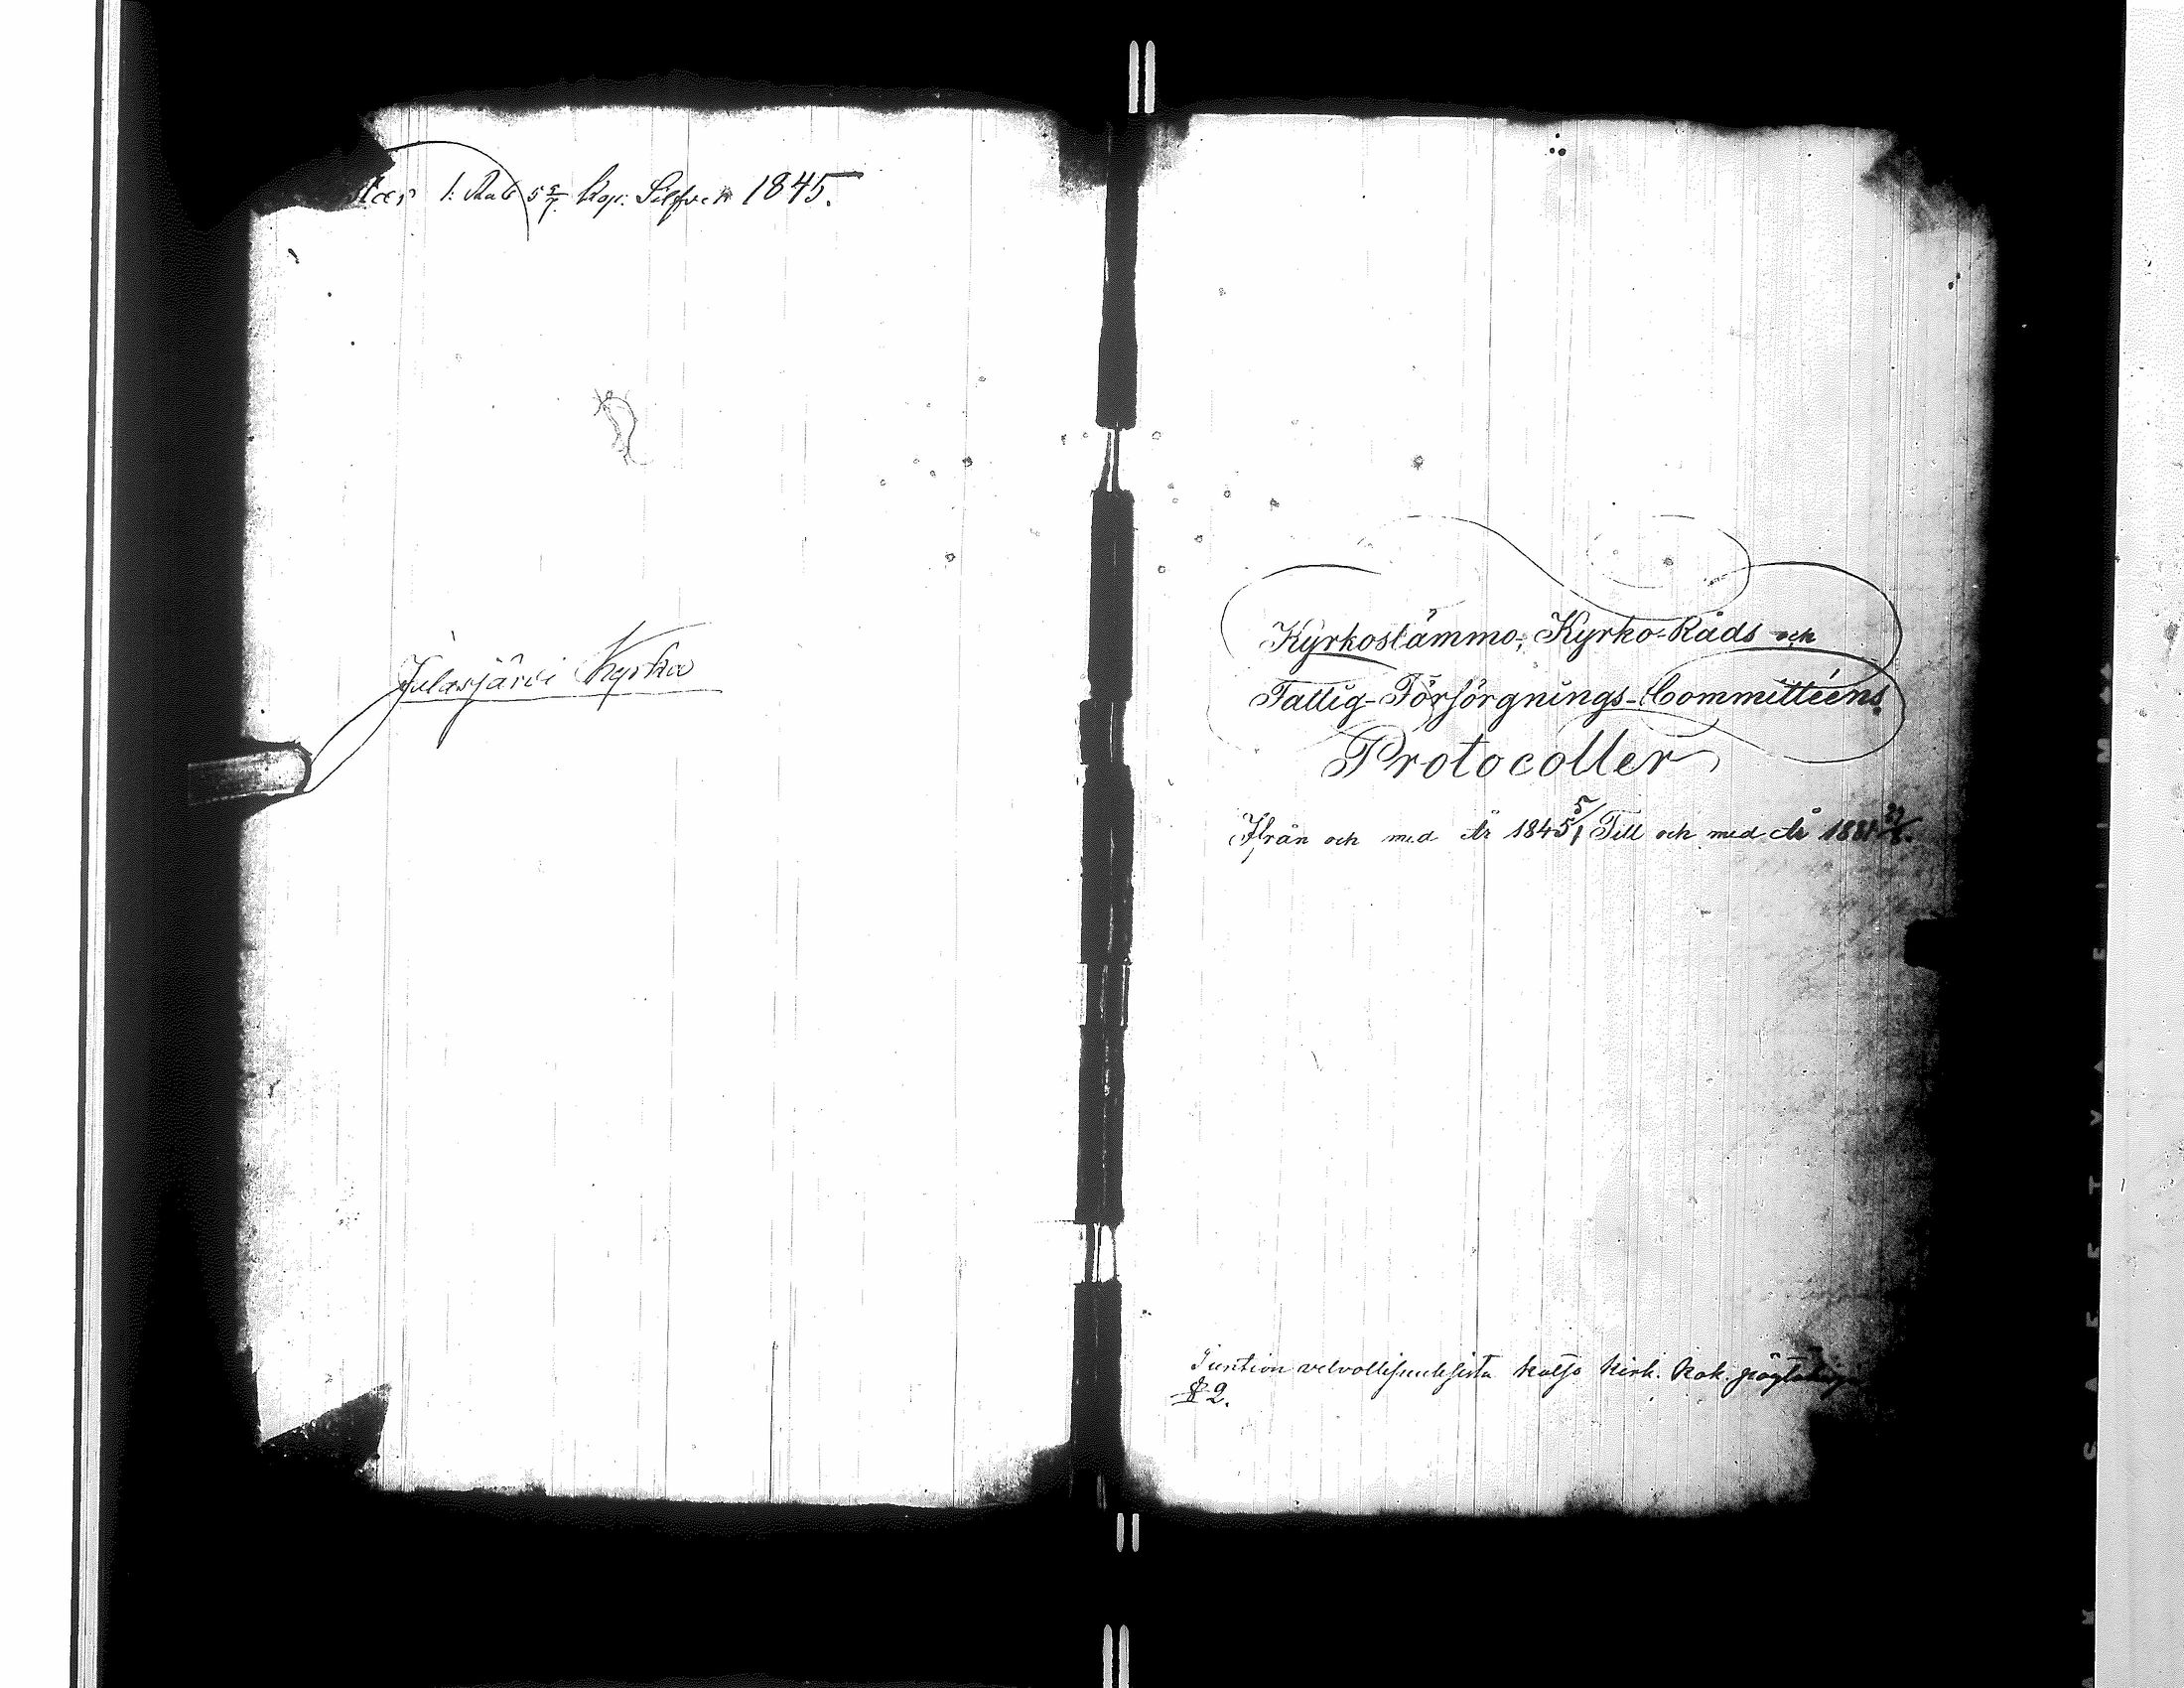 1: Rub 5 5/7 Kop: Silfver 1845.
Julasjärvi Kyrka
Kyrkostämmo-, Kyrko-Råds och
Fattig-Försörgnings-Committéens
Protocoller
Ifrån och med År 1845 5/1 Till och med År 1881
Suntion velvollisuuksista katso kirk. kok. pöytäkirja
§ 2.